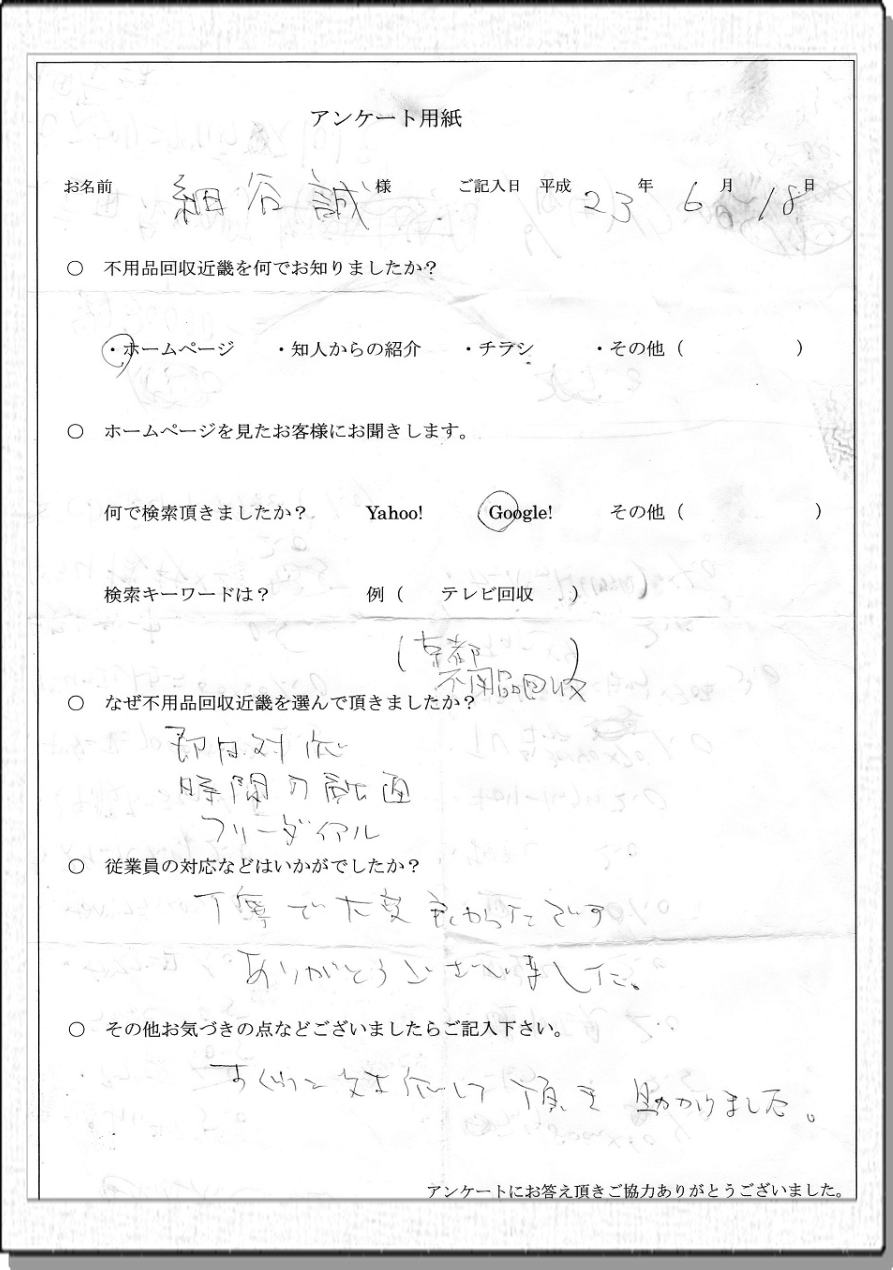 アンケート用紙
お名前 細谷 誠 様 ご記入日 平成 23 年 6 月 18 日
○ 不用品回収近畿を何でお知りましたか？
・ホームページ ・知人からの紹介 ・チラシ ・その他（ ）
○ ホームページを見たお客様にお聞きします。
何で検索頂きましたか？ Yahoo! Google! その他（ ）
検索キーワードは？ 例（ テレビ回収 ）
（京都 ）
不用品回収
○ なぜ不用品回収近畿を選んで頂きましたか？
即日対応
時間の
フリーダイアル
○ 従業員の対応などはいかがでしたか？
丁寧で大変 です
ありがとうございました。
○ その他お気づきの点などございましたらご記入下さい。
すぐに対応して頂き 助かりました。
アンケートにお答え頂きご協力ありがとうございました。